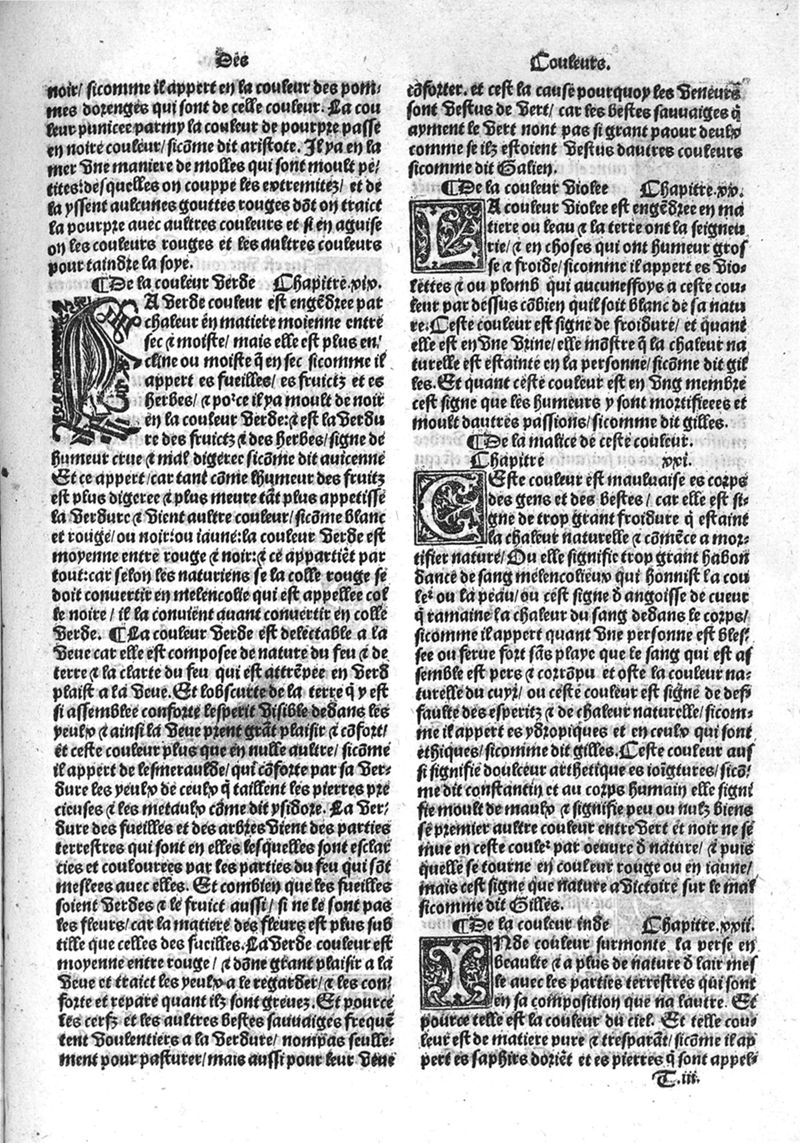 Des
Couleurs.
noir/ sicomme il appert en la couleur des pom⸗
mes dorenges qui sont de celle couleur. La cou
leur punicee parmy la couleur de pourpre passe
en noire couleur/ sicōme dit aristote. Il ya en la
mer vne maniere de molles qui sont moult pe⸗
tites: desquelles on couppe les extremitez/ et de
la yssent aulcunes gouttes rouges dōt on traict
la pourpre avec aultres couleurs et si en aguise
on les couleurs rouges et les aultres couleurs
pour taindre la soye.
¶ De la couleur verde Chapitre.xix.
LA verde couleur est engēdree par
chaleur en matiere moienne entre
sec ⁊ moiste/ mais elle est plus en/
cline ou moiste q̄ en sec sicomme il
appert es fueilles/ es fruictz et es
herbes/ ⁊ porce il ya moult de noir
en la couleur verde: ⁊ est la verdu
re des fruictz ⁊ des herbes/ signe de
humeur crue ⁊ mal digeree sicōme dit auicenne
Et ce appert/ car tant cōme lhumeur des fruitz
est plus digeree ⁊ plus meure tāt plus appetisse
la verdure ⁊ vient aultre couleur/ sicōme blanc
et rouge/ ou noir: ou iaune: la couleur verde est
moyenne entre rouge ⁊ noir: ⁊ ce appartiēt par
tout: car selon les naturiens se la colle rouge se
doit convertir en melencolie qui est appellee col
le noire/ il la conviēt auant convertir en colle
verde. ¶ La couleur verde est delectable a la
veue car elle est composee de nature du feu ⁊ de
terre ⁊ la clarte du feu qui est attrēpee en verd
plaist a la veue. Et lobscurte de la terre q̄ y est
si assemblee conforte lesperit visible dedans les
yeulx ⁊ ainsi la veue prent grāt plaisir ⁊ cōfort/
et ceste couleur plus que en nulle aultre/ sicōme
il appert de lesmeraulde/ qui cōforte par sa ver⸗
dure les yeulx de ceulx q̄ taillent les pierres pre
cieuses ⁊ les metaulx cōme dit ysidore. La ver⸗
dure des fueilles et des arbres vient des parties
terrestres qui sont en elles lesquelles sont esclar
cies et coulourees par les parties du feu qui sōt
meslees avec elles. Et combien que les fueilles
soient verdes ⁊ le fruict aussi/ si ne le sont pas
les fleurs/ car la matiere des fleurs est plus sub
tille que celles des fueilles. La verde couleur est
moyenne entre rouge/ ⁊ dōne grant plaisir a la
veue et traict les yeulx a le regarder/ ⁊ les con⸗
forte et repare quant ilz sont greuez. Et pource
les cerfz et les aultres bestes sauuaiges frequē
tent voulentiers a la verdure/ non pas seulle⸗
ment pour pasturer/ mais aussi pour leur veue
cōforter. et cest la cause pourquoy les veneurs
sont vestus de vert/ car les bestes sauuaiges q̄
ayment le vert nont pas si grant paour deulx
comme se ilz estoient vestus dautres couleurs
sicomme dit Galien.
¶ De la couleur violee Chapitre.xx.
LA couleur violee est engēdree en ma
tiere ou leau ⁊ la terre ont la seigneu
rie/ ⁊ en choses qui ont humeur gros
se ⁊ froide/ sicomme il appert es vio⸗
lettes ⁊ ou plomb qui aucuneffoys a ceste cou⸗
leur par dessus cōbien quil soit blanc de sa natu
re. Ceste couleur est signe de froidure/ et quant
elle est en vne vrine/ elle mōstre q̄ la chaleur na
turelle est estainte en la personne/ sicōme dit gil
les. Et quant ceste couleur est en vng membre
cest signe que les humeurs y sont mortifieees et
moult dautres passions/ sicomme dit gilles.
¶ De la malice de ceste couleur.
Chapitre xxi.
CEste couleur est mauluaise es corps
des gens et des bestes/ car elle est si⸗
gne de trop grant froidure q̄ estaint
la chaleur naturelle ⁊ cōmēce a mor⸗
tifier nature/ Ou elle signifie trop grant habon
dance de sang melencolieux qui honnist la cou
ler ou la peau/ ou cest signe d̄ angoisse de cueur
q̄ ramaine la chaleur du sang dedans le corps/
sicomme il appert quant vne personne est bles⸗
see ou ferue fort sās playe que le sang qui est as
semble est pers ⁊ corrōpu et oste la couleur na⸗
turelle du cuyr/ ou ceste couleur est signe de def⸗
faulte des esperitz ⁊ de chaleur naturelle/ sicom⸗
me il appert es ydropiques et en ceulx qui sont
ethiques/ sicomme dit gilles. Ceste couleur aus
si signifie douleeur arthetique es ioīgtures/ sicō⸗
me dit constantin et au corps humain elle signi
fie moult de maulx ⁊ signifie peu ou nulz biens
se premier aultre couleur entre vert et noir ne se
mue en ceste couler par oeuure d̄ nature/ ⁊ puis
quelle se tourne en couleur rouge ou en iaune/
mais cest signe que nature a victoire sur le mal
sicomme dit Gilles.
¶ De la couleur inde Chapitre.xxii.
INde couleur surmonte la perse en
beaulte ⁊ a plus de nature d̄ lair mes
le avec les parties terrestres qui sont
en sa composition que na lautre. Et
pource telle est la couleur du ciel. Et telle cou⸗
leur est de matiere pure ⁊ tresparāt/ sicōme il ap
pert es saphirs doriēt et es pierres q̄ sont appel⸗
T.iii.